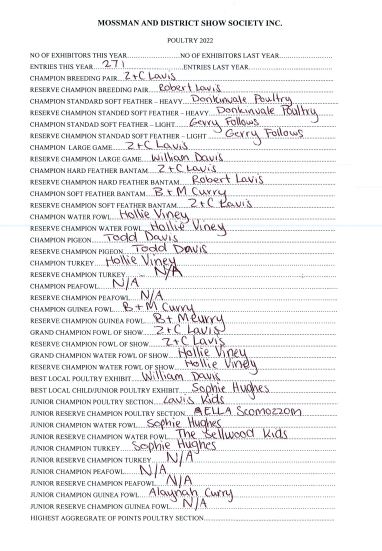 MOSSMAN AND DISTRICT SHOW SOCIETY INC.
POULTRY 2022
NO OF EXHIBITORS THIS YEAR..............NO OF EXHIBITORS LAST YEAR..............
ENTRIES THIS YEAR 271 ENTRIES LAST YEAR..............
CHAMPION BREEDING PAIR Z+C Lavis
RESERVE CHAMPION BREEDING PAIR Robert Lavis
CHAMPION STANDARD SOFT FEATHER – HEAVY Donkinvale Poultry
RESERVE CHAMPION STANDED SOFT FEATHER – HEAVY Donkinvale Poultry
CHAMPION STANDARD SOFT FEATHER – LIGHT Gerry Follows
RESERVE CHAMPION STANDARD SOFT FEATHER – LIGHT Gerry Follows
CHAMPION LARGE GAME Z+C Lavis
RESERVE CHAMPION LARGE GAME William Davis
CHAMPION HARD FEATHER BANTAM Z+C Lavis
RESERVE CHAMPION HARD FEATHER BANTAM Robert Lavis
CHAMPION SOFT FEATHER BANTAM B+M Curry
RESERVE CHAMPION SOFT FEATHER BANTAM Z+C Lavis
CHAMPION WATER FOWL Hollie Viney
RESERVE CHAMPION WATER FOWL Hollie Viney
CHAMPION PIGEON Todd Davis
RESERVE CHAMPION PIGEON Todd Davis
CHAMPION TURKEY Hollie Viney
RESERVE CHAMPION TURKEY N/A
CHAMPION PEAFOWL N/A
RESERVE CHAMPION PEAFOWL N/A
CHAMPION GUINEA FOWL B+M Curry
RESERVE CHAMPION GUINEA FOWL B+M Curry
GRAND CHAMPION FOWL OF SHOW Z+C Lavis
RESERVE CHAMPION FOWL OF SHOW Z+C Lavis
GRAND CHAMPION WATER FOWL OF SHOW Hollie Viney
RESERVE CHAMPION WATER FOWL OF SHOW Hollie Viney
BEST LOCAL POULTRY EXHIBIT William Davis
BEST LOCAL CHILD/JUNIOR POULTRY EXHIBIT Sophie Hughes
JUNIOR CHAMPION POULTRY SECTION Lavis Kids
JUNIOR RESERVE CHAMPION POULTRY SECTION ELLA Scomazzon
JUNIOR CHAMPION WATER FOWL Sophie Hughes
JUNIOR RESERVE CHAMPION WATER FOWL The Sellwood Kids
JUNIOR CHAMPION TURKEY Sophie Hughes
JUNIOR RESERVE CHAMPION TURKEY N/A
JUNIOR CHAMPION PEAFOWL N/A
JUNIOR RESERVE CHAMPION PEAFOWL N/A
JUNIOR CHAMPION GUINEA FOWL Alaynah Curry
JUNIOR RESERVE CHAMPION GUINEA FOWL N/A
HIGHEST AGGREGRATE OF POINTS POULTRY SECTION..............